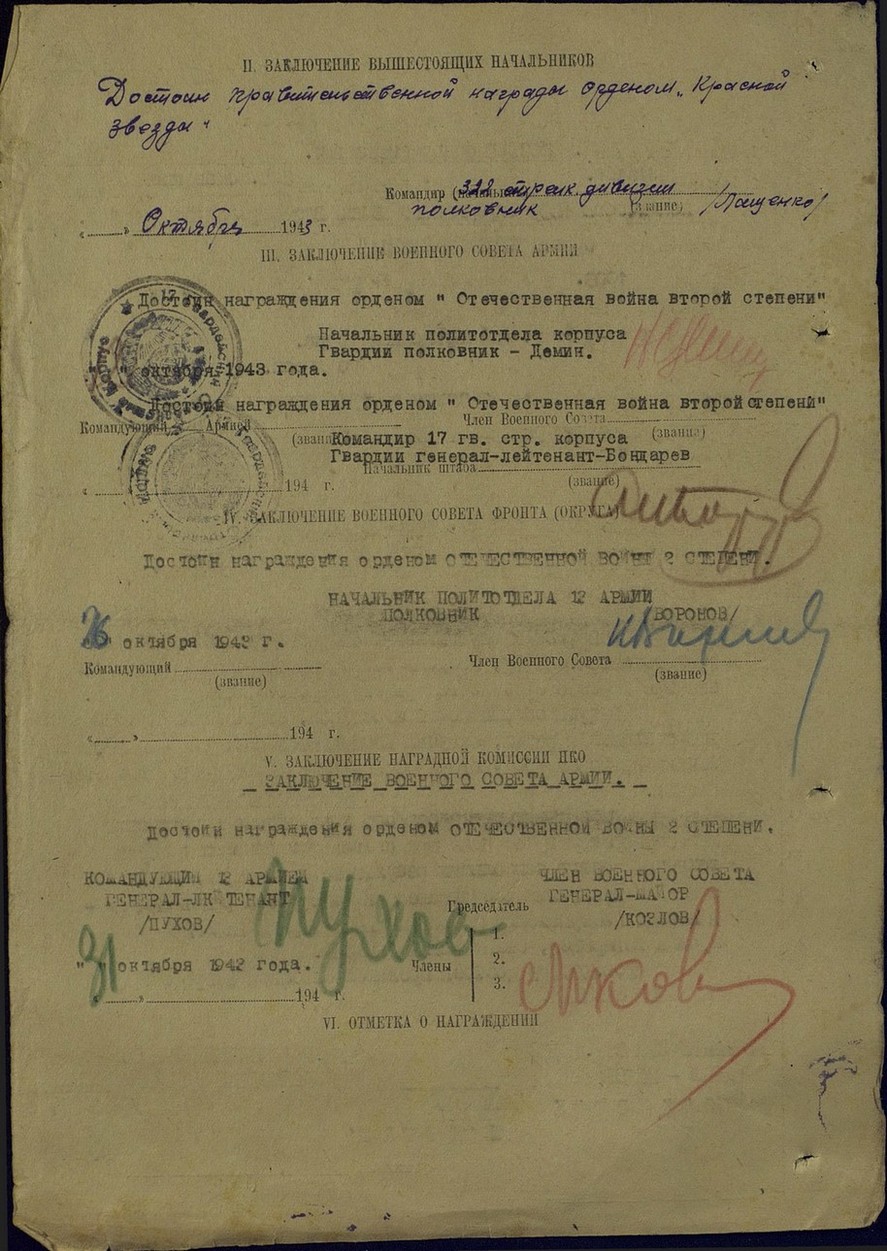 II. ЗАКЛЮЧЕНИЕ ВЫШЕСТОЯЩИХ НАЧАЛЬНИКОВ
Достоин правительственной награды орденом „Красной
звезды"
Командир стрелк. дивизии
полковник (звание) /Лащенко/
„ " Октября 1943 г.
III. ЗАКЛЮЧЕНИЕ ВОЕННОГО СОВЕТА АРМИИ
Достоин награждения орденом " Отечественная война второй степени"
Начальник политотдела корпуса
Гвардии полковник - Демин.
" " октября 1943 года.
Достоин награждения орденом " Отечественная война второй степени"
Командующий Армией Член Военного Совета
(звание) Командир 17 гв. стр. корпуса (звание)
Гвардии генерал-лейтенант-Бондарев
Начальник штаба
„ " 194 г. (звание)
IV. ЗАКЛЮЧЕНИЕ ВОЕННОГО СОВЕТА ФРОНТА (ОКРУГА)
Достоин награждения орденом ОТЕЧЕСТВЕННОЙ ВОЙНЫ 2 СТЕПЕНИ.
НАЧАЛЬНИК ПОЛИТОТДЕЛА 12 АРМИИ
ПОЛКОВНИК /ВОРОНОВ/
октября 1943 г.
Командующий Член Военного Совета
(звание) (звание)
„ " 194 г.
V. ЗАКЛЮЧЕНИЕ НАГРАДНОЙ КОМИССИИ НКО
ЗАКЛЮЧЕНИЕ ВОЕННОГО СОВЕТА АРМИИ.
Достоин награждения орденом ОТЕЧЕСТВЕННОЙ ВОЙНЫ 2 СТЕПЕНИ.
КОМАНДУЮЩИЙ 12 АРМИЕЙ ЧЛЕН ВОЕННОГО СОВЕТА
ГЕНЕРАЛ-ЛЕЙТЕНАНТ ГЕНЕРАЛ-МАЙОР
/ПУХОВ/ Председатель /КОЗЛОВ/
Пухов
1.
"31" октября 1943 года. Члены 2.
3.
„ " 194 г.
VI. ОТМЕТКА О НАГРАЖДЕНИИ